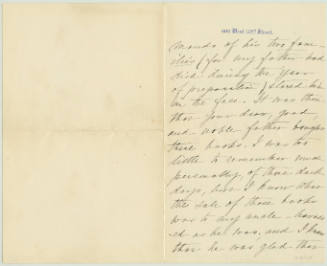 West Street.
mands of his two fam-
ilies (for my father had
died during the year
of preparation) stared him
in the face. It was then
that your dear, good,
and noble father bought
these books. I was too
little to remember much
personally, of those dark
days, but I know what
the sale of those books
was to my uncle - harass-
ed as he was, and I know
that he was glad that